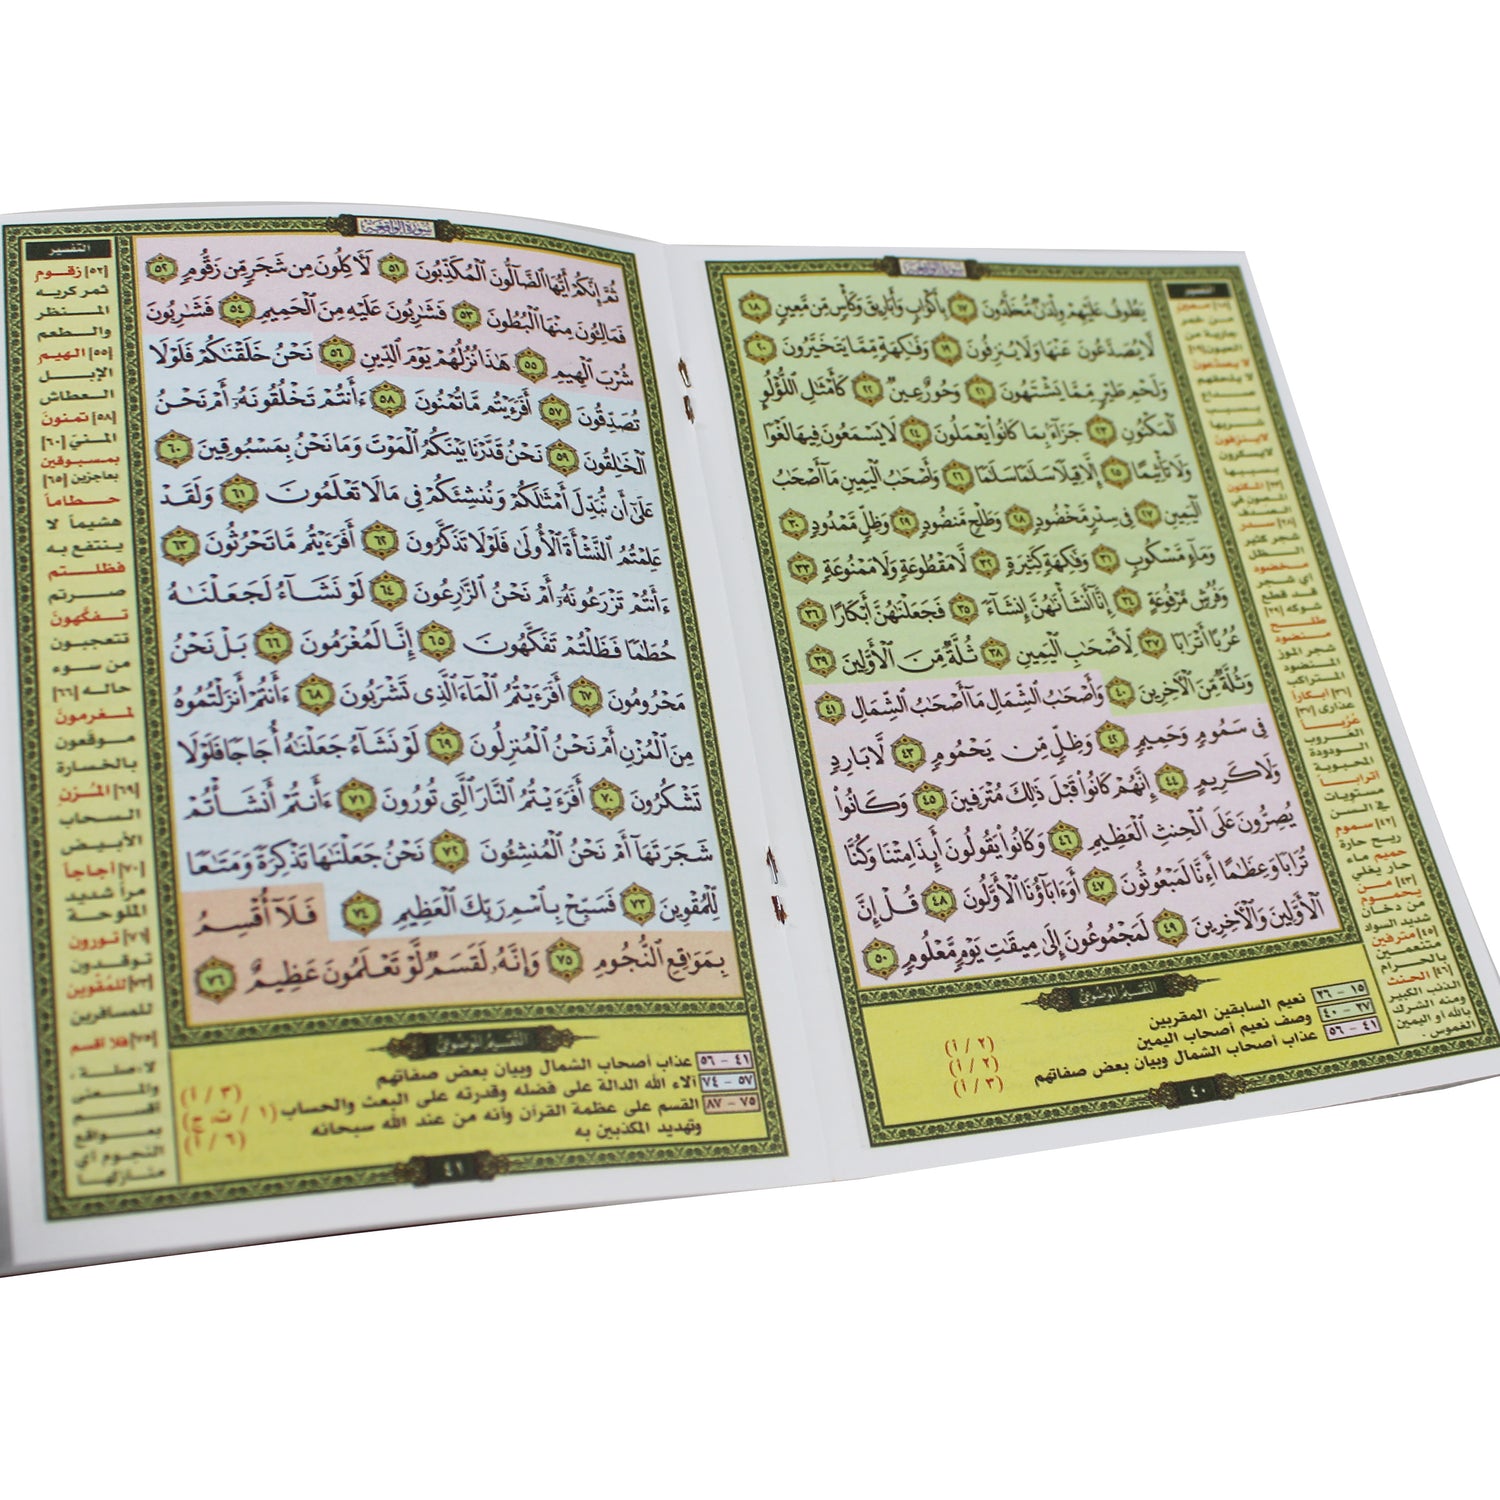 سورة الواقعة
يَطُوفُ عَلَيْهِمْ وِلْدَانٌ مُّخَلَّدُونَ ١٧ بِأَكْوَابٍ وَأَبَارِيقَ وَكَأْسٍ مِّن مَّعِينٍ ١٨
لَا يُصَدَّعُونَ عَنْهَا وَلَا يُنزِفُونَ ١٩ وَفَاكِهَةٍ مِّمَّا يَتَخَيَّرُونَ ٢٠
وَلَحْمِ طَيْرٍ مِّمَّا يَشْتَهُونَ ٢١ وَحُورٌ عِينٌ ٢٢ كَأَمْثَالِ اللُّؤْلُؤِ
الْمَكْنُونِ ٢٣ جَزَاءً بِمَا كَانُوا يَعْمَلُونَ ٢٤ لَا يَسْمَعُونَ فِيهَا لَغْوًا
وَلَا تَأْثِيمًا ٢٥ إِلَّا قِيلًا سَلَامًا سَلَامًا ٢٦ وَأَصْحَابُ الْيَمِينِ مَا أَصْحَابُ
الْيَمِينِ ٢٧ فِي سِدْرٍ مَّخْضُودٍ ٢٨ وَطَلْحٍ مَّنضُودٍ ٢٩ وَظِلٍّ مَّمْدُودٍ ٣٠
وَمَاءٍ مَّسْكُوبٍ ٣١ وَفَاكِهَةٍ كَثِيرَةٍ ٣٢ لَّا مَقْطُوعَةٍ وَلَا مَمْنُوعَةٍ ٣٣
وَفُرُشٍ مَّرْفُوعَةٍ ٣٤ إِنَّا أَنشَأْنَاهُنَّ إِنشَاءً ٣٥ فَجَعَلْنَاهُنَّ أَبْكَارًا ٣٦
عُرُبًا أَتْرَابًا ٣٧ لِّأَصْحَابِ الْيَمِينِ ٣٨ ثُلَّةٌ مِّنَ الْأَوَّلِينَ ٣٩
وَثُلَّةٌ مِّنَ الْآخِرِينَ ٤٠ وَأَصْحَابُ الشِّمَالِ مَا أَصْحَابُ الشِّمَالِ ٤١
فِي سَمُومٍ وَحَمِيمٍ ٤٢ وَظِلٍّ مِّن يَحْمُومٍ ٤٣ لَّا بَارِدٍ
وَلَا كَرِيمٍ ٤٤ إِنَّهُمْ كَانُوا قَبْلَ ذَلِكَ مُتْرَفِينَ ٤٥ وَكَانُوا
يُصِرُّونَ عَلَى الْحِنثِ الْعَظِيمِ ٤٦ وَكَانُوا يَقُولُونَ أَئِذَا مِتْنَا وَكُنَّا
تُرَابًا وَعِظَامًا أَءِنَّا لَمَبْعُوثُونَ ٤٧ أَوَءَابَاؤُنَا الْأَوَّلُونَ ٤٨ قُلْ إِنَّ
الْأَوَّلِينَ وَالْآخِرِينَ ٤٩ لَمَجْمُوعُونَ إِلَى مِيقَاتِ يَوْمٍ مَّعْلُومٍ ٥٠
التفسير
[١٨] معين
من خمر
جارية من
العيون [١٩]
لا يصدعون
لا يلحقهم
صداع
بسبب
شربها
لا ينزفون
لا يسكرون
بسببها
[٢٣] المكنون
المصون في
الصدف
[٢٨] سدر
شجر كثير
الظل
مخضود
أي شجر
قد قطع
شوكه [٢٩]
طلح
منضود
شجر الموز
المنضود
المتراكب
[٣٦] أبكاراً
عذارى [٣٧]
عُرُباً
العروب
الودودة
المحبوبة
أتراباً
مستويات
في السن
[٤٢] سموم
ريح حارة
حميم ماء
حار يغلي
[٤٣] من
يحموم
من دخان
شديد السواد
[٤٥] مترفين
متنعمين
بالحرام
[٤٦] الحنث
الذنب الكبير
ومنه الشرك
بالله أو اليمين
الغموس .
التقسيم الموضوعي
١٥ - ٢٦ نعيم السابقين المقربين (٢ / ١)
٢٧ - ٤٠ وصف نعيم أصحاب اليمين (٢ / ١)
٤١ - ٥٦ عذاب أصحاب الشمال وبيان بعض صفاتهم (٣ / ١)
٤٠
سورة الواقعة
ثُمَّ إِنَّكُمْ أَيُّهَا الضَّالُّونَ الْمُكَذِّبُونَ ٥١ لَآكِلُونَ مِن شَجَرٍ مِّن زَقُّومٍ ٥٢
فَمَالِئُونَ مِنْهَا الْبُطُونَ ٥٣ فَشَارِبُونَ عَلَيْهِ مِنَ الْحَمِيمِ ٥٤ فَشَارِبُونَ
شُرْبَ الْهِيمِ ٥٥ هَذَا نُزُلُهُمْ يَوْمَ الدِّينِ ٥٦ نَحْنُ خَلَقْنَاكُمْ فَلَوْلَا
تُصَدِّقُونَ ٥٧ أَفَرَءَيْتُم مَّا تُمْنُونَ ٥٨ ءَأَنتُمْ تَخْلُقُونَهُ أَمْ نَحْنُ
الْخَالِقُونَ ٥٩ نَحْنُ قَدَّرْنَا بَيْنَكُمُ الْمَوْتَ وَمَا نَحْنُ بِمَسْبُوقِينَ ٦٠
عَلَى أَن نُّبَدِّلَ أَمْثَالَكُمْ وَنُنشِئَكُمْ فِي مَا لَا تَعْلَمُونَ ٦١ وَلَقَدْ
عَلِمْتُمُ النَّشْأَةَ الْأُولَى فَلَوْلَا تَذَكَّرُونَ ٦٢ أَفَرَءَيْتُم مَّا تَحْرُثُونَ ٦٣
ءَأَنتُمْ تَزْرَعُونَهُ أَمْ نَحْنُ الزَّارِعُونَ ٦٤ لَوْ نَشَاءُ لَجَعَلْنَاهُ
حُطَامًا فَظَلْتُمْ تَفَكَّهُونَ ٦٥ إِنَّا لَمُغْرَمُونَ ٦٦ بَلْ نَحْنُ
مَحْرُومُونَ ٦٧ أَفَرَءَيْتُمُ الْمَاءَ الَّذِي تَشْرَبُونَ ٦٨ ءَأَنتُمْ أَنزَلْتُمُوهُ
مِنَ الْمُزْنِ أَمْ نَحْنُ الْمُنزِلُونَ ٦٩ لَوْ نَشَاءُ جَعَلْنَاهُ أُجَاجًا فَلَوْلَا
تَشْكُرُونَ ٧٠ أَفَرَءَيْتُمُ النَّارَ الَّتِي تُورُونَ ٧١ ءَأَنتُمْ أَنشَأْتُمْ
شَجَرَتَهَا أَمْ نَحْنُ الْمُنشِئُونَ ٧٢ نَحْنُ جَعَلْنَاهَا تَذْكِرَةً وَمَتَاعًا
لِّلْمُقْوِينَ ٧٣ فَسَبِّحْ بِاسْمِ رَبِّكَ الْعَظِيمِ ٧٤ فَلَا أُقْسِمُ
بِمَوَاقِعِ النُّجُومِ ٧٥ وَإِنَّهُ لَقَسَمٌ لَّوْ تَعْلَمُونَ عَظِيمٌ ٧٦
التفسير
[٥٢] زقوم
ثمر كريه
المنظر
والطعم
[٥٥] الهيم
الإبل
العطاش
[٥٨] تمنون
المني [٦٠]
بمسبوقين
بعاجزين [٦٥]
حطاماً
هشيماً لا
ينتفع به
فظلتم
صرتم
تفكهون
تتعجبون
من سوء
حاله [٦٦]
لمغرمون
موقعون
بالخسارة
[٦٩] المُزن
السحاب
الأبيض
[٧٠] أجاجاً
مراً شديد
الملوحة
[٧١] تورون
توقدون
[٧٣] للمقوين
للمسافرين
[٧٥] فلا اقسم
لا ، صلة ،
والمعنى
اقسم
بمواقع
النجوم أي
منازلها
التقسيم الموضوعي
٤١ - ٥٦ عذاب أصحاب الشمال وبيان بعض صفاتهم (٣ / ١)
٥٧ - ٧٤ آلاء الله الدالة على فضله وقدرته على البعث والحساب (١ / ث، ج)
٧٥ - ٨٧ القسم على عظمة القرآن وأنه من عند الله سبحانه (٦ / ١)
وتهديد المكذبين به
٤١